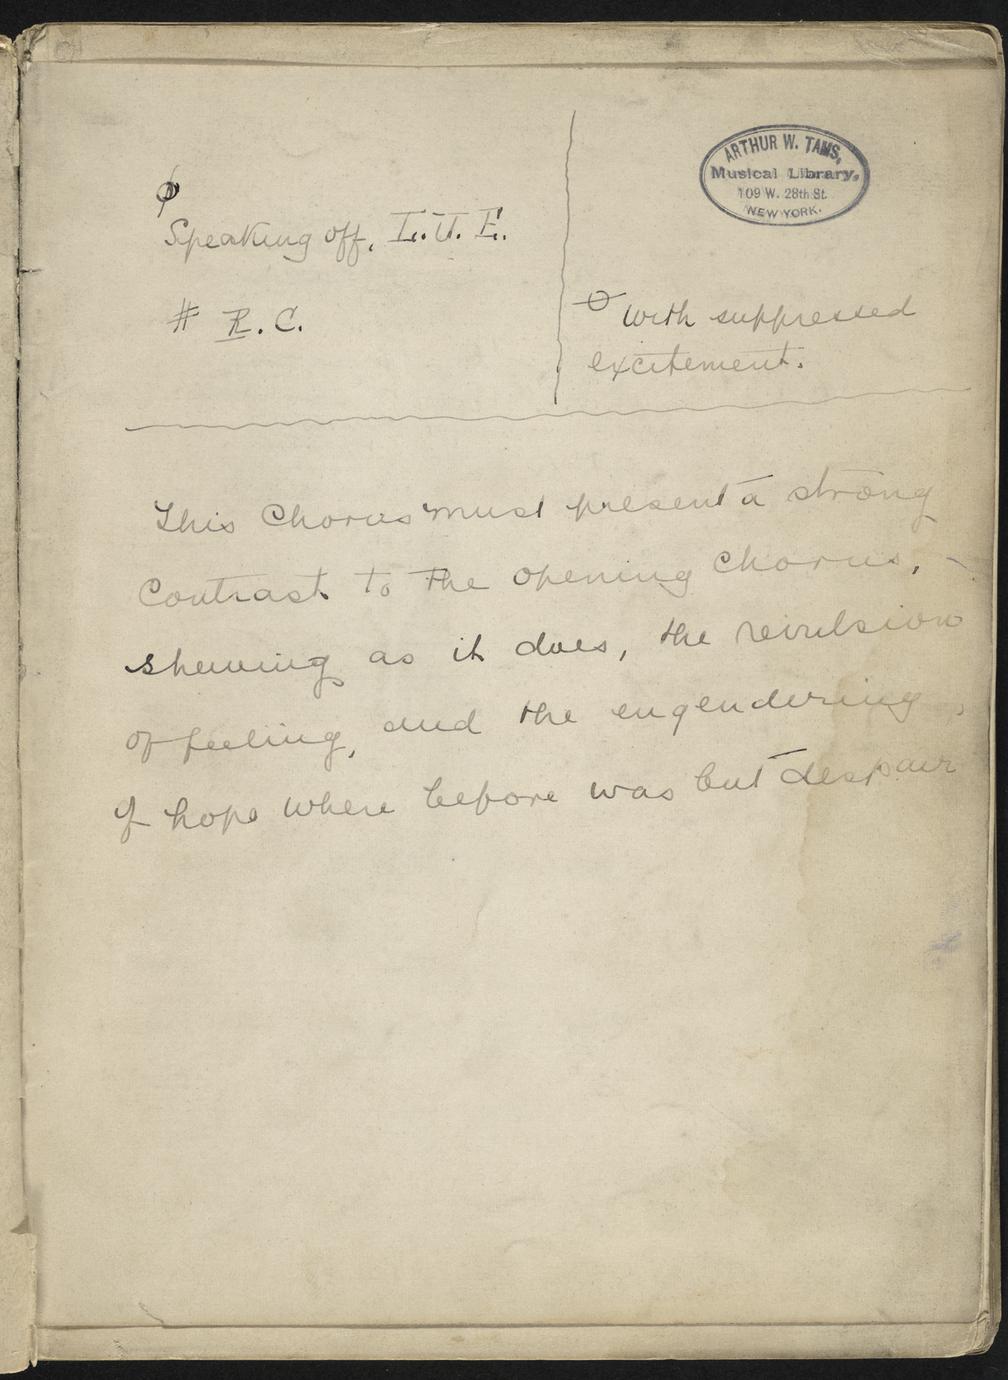 ARTHUR W. TAMS,
Musical Library,
109 W. 28th St.
NEW YORK.
φ
Speaking off, L.U.E.
# R.C.
with suppressed
excitement.
This Chorus must present a strong
Contrast to the opening Chorus, -
shewing as it does, the revulsion
of feeling, and the engendering,
of hope where before was but despair